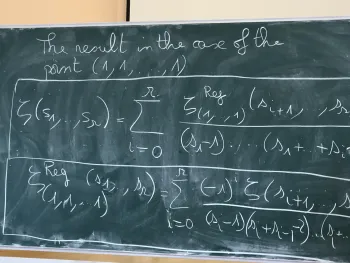 The result in the case of the
point (1,1,...,1)
ζ(s₁,..,sᵣ) = ∑_{i=0}^{r} ζ^{Reg}_{(1,..,1)}(s_{i+1},..,s_r / (s₁-1)....(s₁+..+s_i
ζ^{Reg}_{(1,1,..1)}(s₁,..,s_r) = ∑_{i=0}^{r} (-1)^i ζ(s_{i+1},..,s / (s_i-1)(s_i+s_{i-1}-2)..(s_i+..